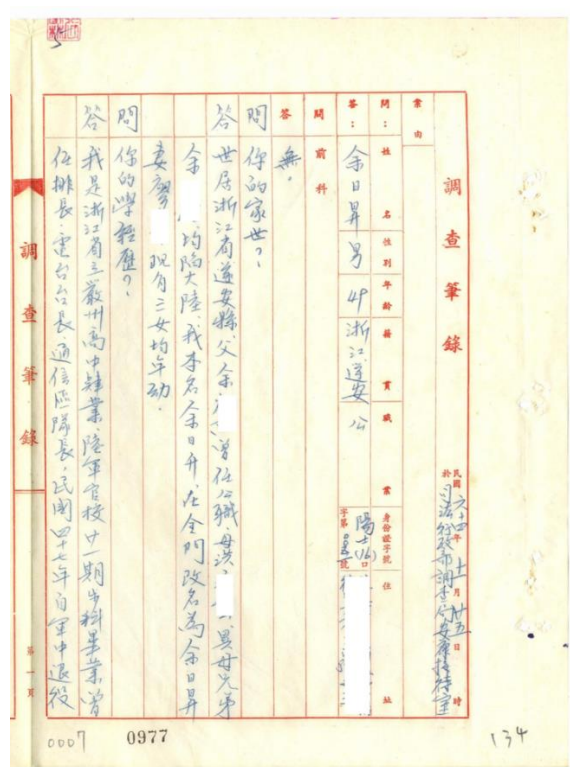 調查筆錄
民國六十四年十一月廿五日 時
於司法行政部調查局安康接待室
案由
問：姓名 性別 年齡 籍貫 職業 身份證字號 住址
答：余日昇 男 49 浙江遂安 公
問 前科
答 無。
問 你的家世？
答 世居浙江省遂安縣，父余 曾任公職，母洪 異母兄弟
余 均陷大陸，我本名余日升，在金門改名為余日昇
妻廖 現有二女均年幼．
問 你的學經歷？
答 我是浙江省立嚴州高中肄業，陸軍官校廿一期步科畢業，曾
任排長、電台台長、通信區隊長，民國四十七年自軍中退役
調查筆錄
第一頁
0007
0977
134